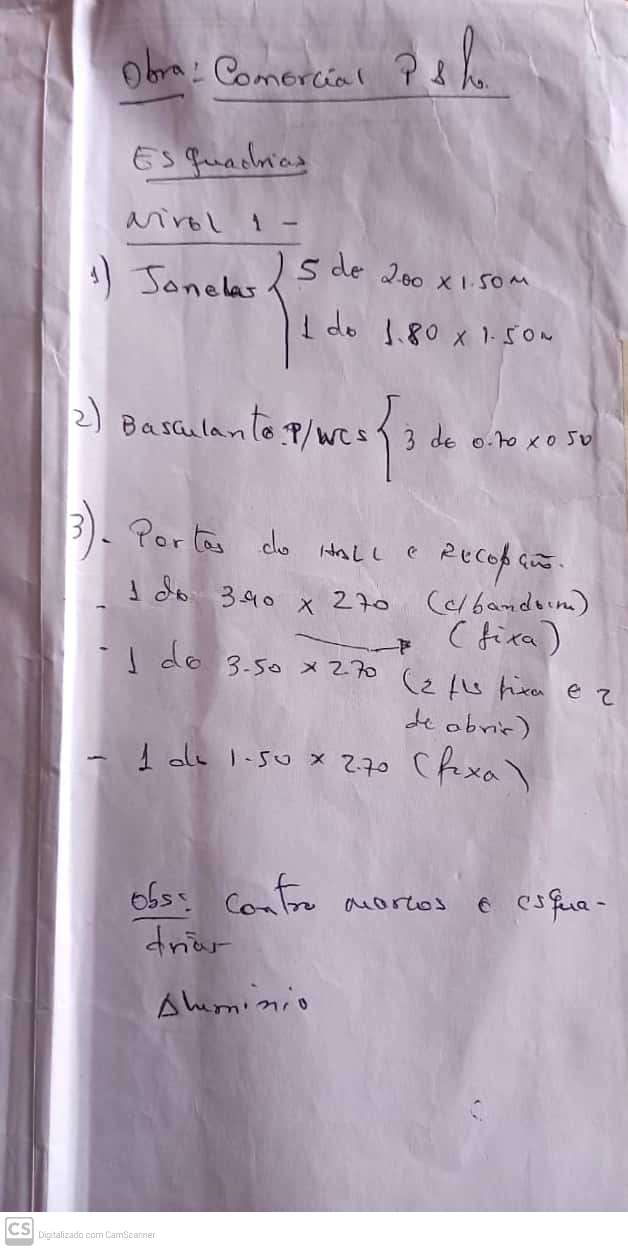 Obra: Comercial P & h.
Esquadrias
Nivel 1 -
1) Janelas { 5 de 2.00 x 1.50 M
1 de 1.80 x 1.50 m
2) Basculante P/WCS { 3 de 0.70 x 0 50
3) - Portas do HALL e Recepção.
- 1 de 3.90 x 270 (c/bandeira)
(fixa)
- 1 de 3.50 x 2.70 (2 fls fixa e 2
de abrir)
- 1 de 1.50 x 2.70 (fixa)
Obs: Contra marcos e esqua-
drias
Aluminio
CS Digitalizado com CamScanner